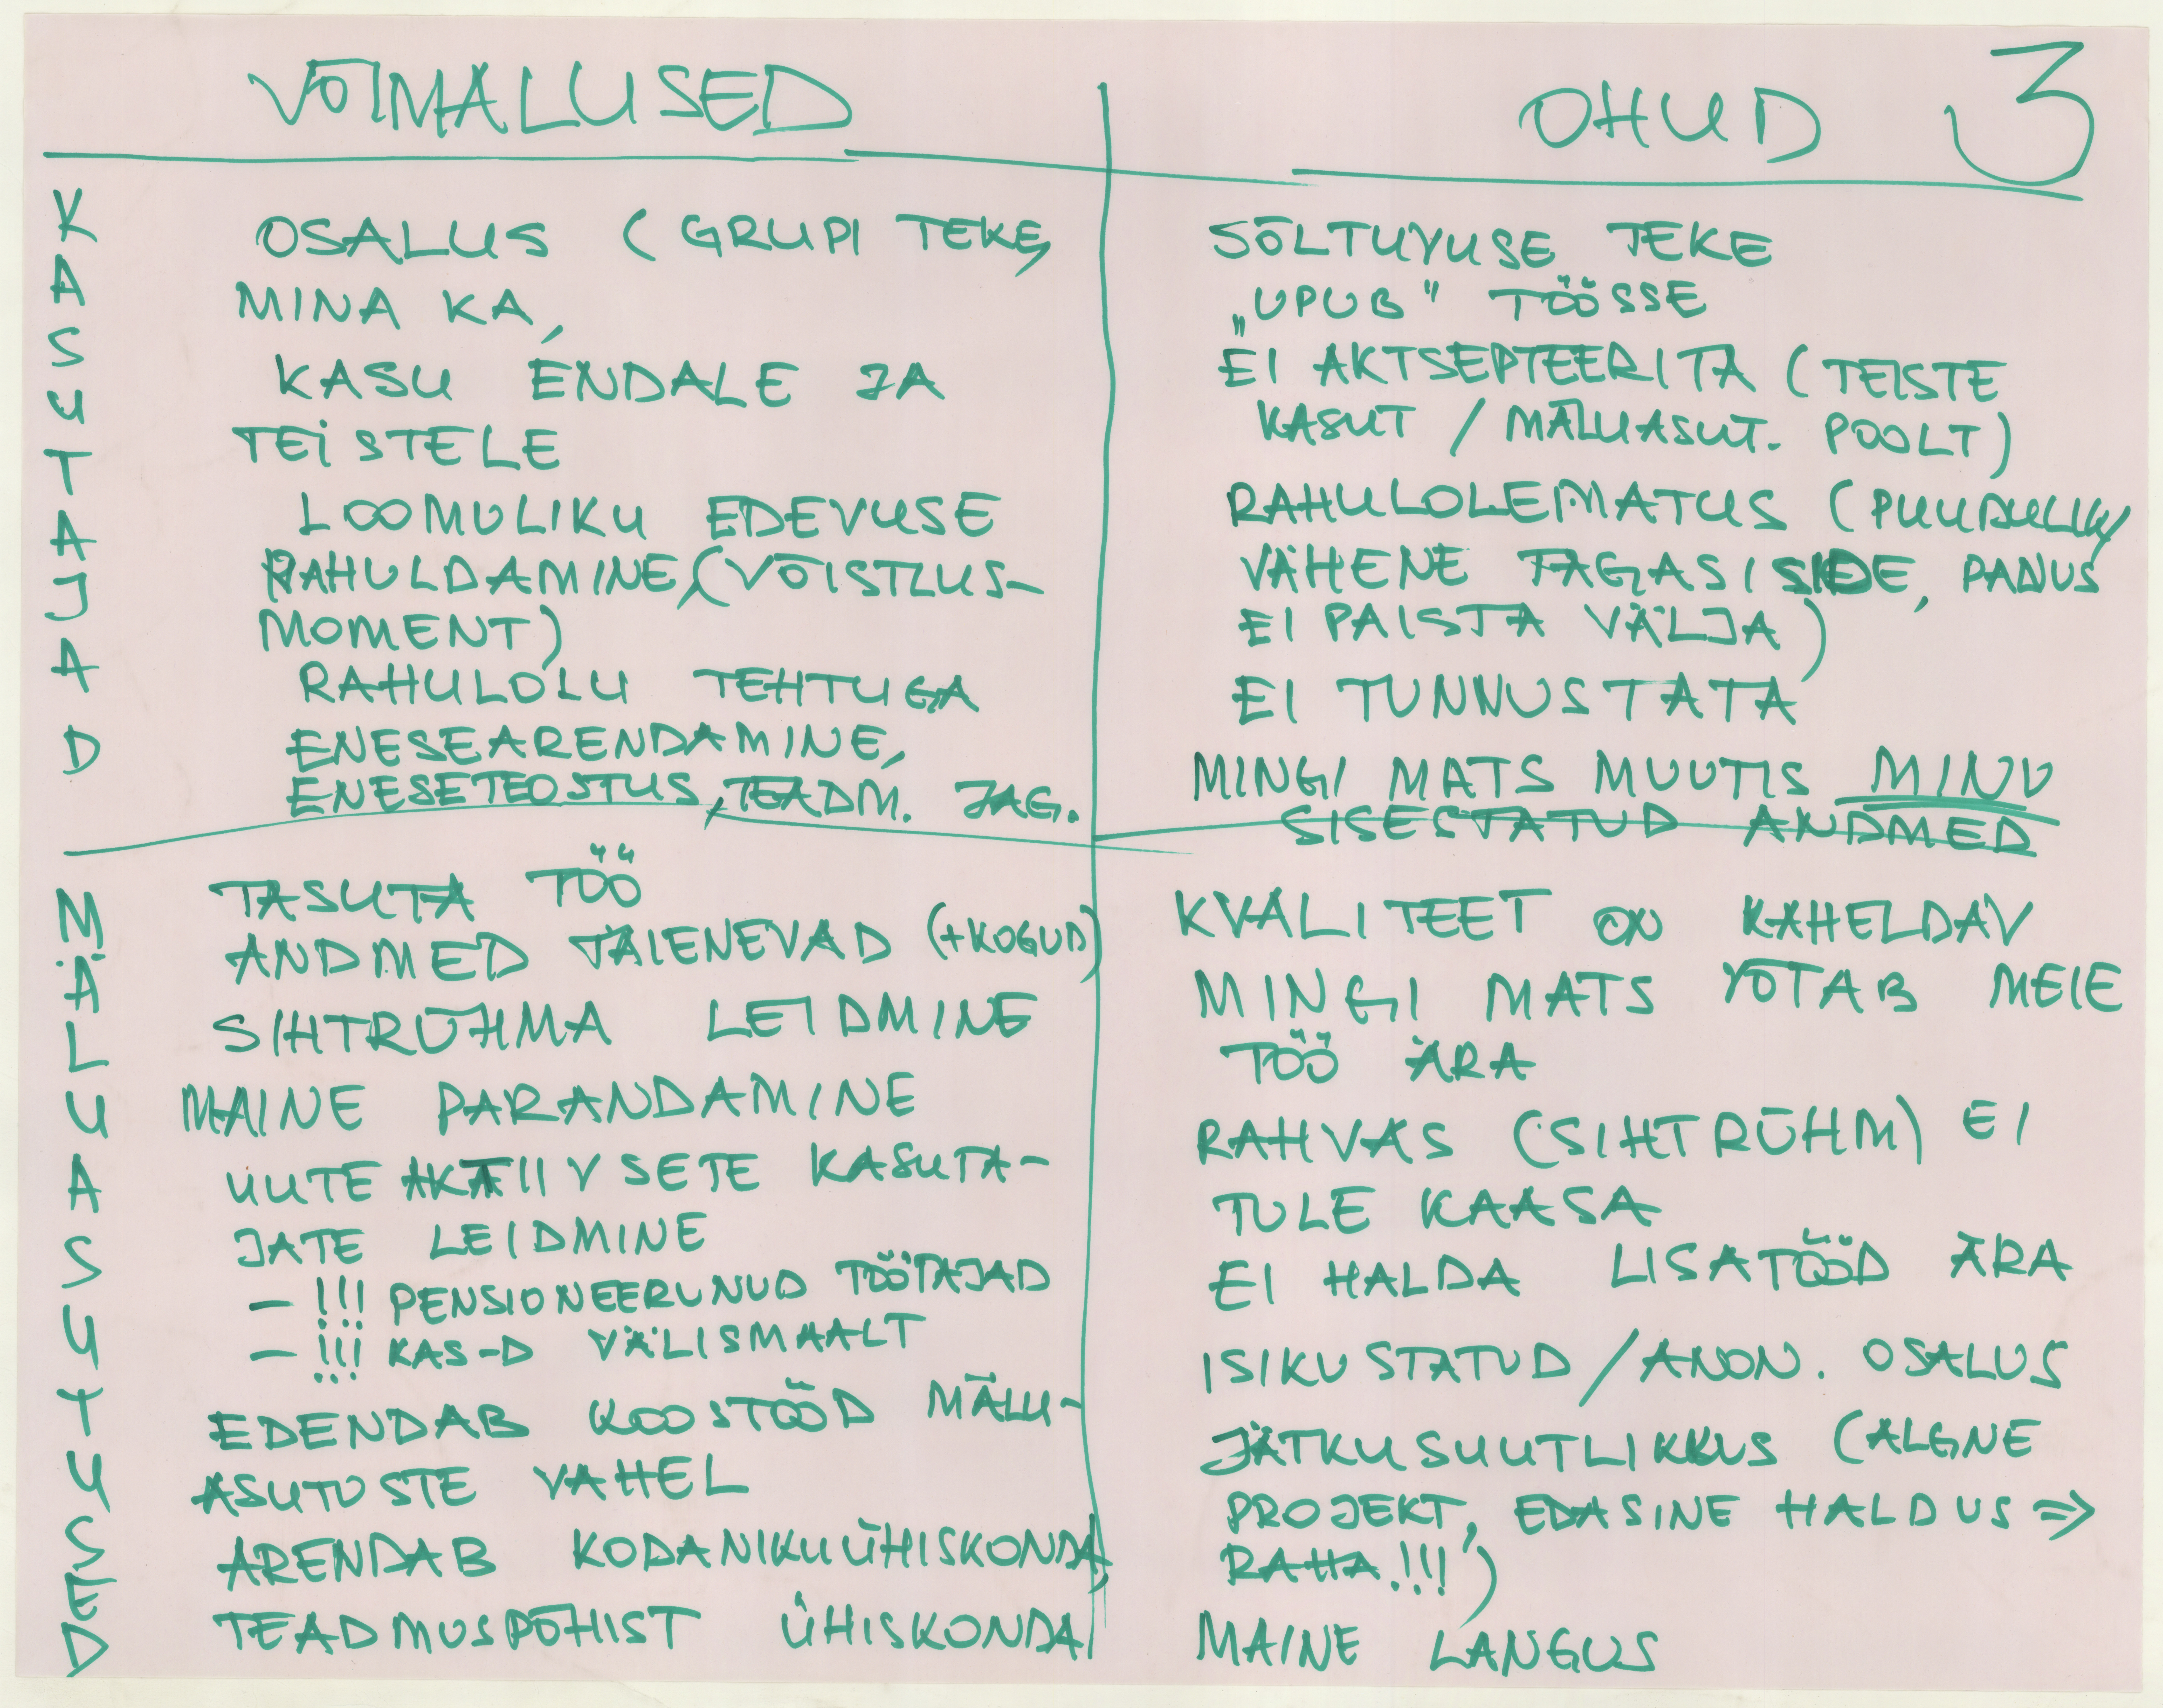 VÕIMALUSED
OHUD 3
KASUTAJAD
OSALUS (GRUPI TEKE,
MINA KA,
KASU ENDALE JA
TEISTELE
LOOMULIKU EDEVUSE
RAHULDAMINE, (VÕISTLUS-
MOMENT)
RAHULOLU TEHTUGA
ENESEARENDAMINE,
ENESETEOSTUS, TEADM. JAG.
SÕLTUVUSE TEKE
„UPUB" TÖÖSSE
EI AKTSEPTEERITA (TEISTE
KASUT / MÄLUASUT. POOLT)
RAHULOLEMATUS (PUUDULIK/
VÄHENE TAGASISIDE, PANUS
EI PAISTA VÄLJA)
EI TUNNUSTATA
MINGI MATS MUUTIS MINU
SISESTATUD ANDMED
MÄLUASUTUSED
TASUTA TÖÖ
ANDMED TÄIENEVAD (+KOGUD)
SIHTRÜHMA LEIDMINE
MAINE PARANDAMINE
UUTE AKTIIVSETE KASUTA-
JATE LEIDMINE
- !!! PENSIONEERUNUD TÖÖTAJAD
- !!! KAS-D VÄLISMAALT
EDENDAB KOOSTÖÖD MÄLU-
ASUTUSTE VAHEL
ARENDAB KODANIKUÜHISKONDA,
TEADMUSPÕHIST ÜHISKONDA
KVALITEET ON KAHELDAV
MINGI MATS VÕTAB MEIE
TÖÖ ÄRA
RAHVAS (SIHTRÜHM) EI
TULE KAASA
EI HALDA LISATÖÖD ÄRA
ISIKUSTATUD / ANON. OSALUS
JÄTKUSUUTLIKKUS (ALGNE
PROJEKT, EDASINE HALDUS ⇒
RAHA!!!)
MAINE LANGUS